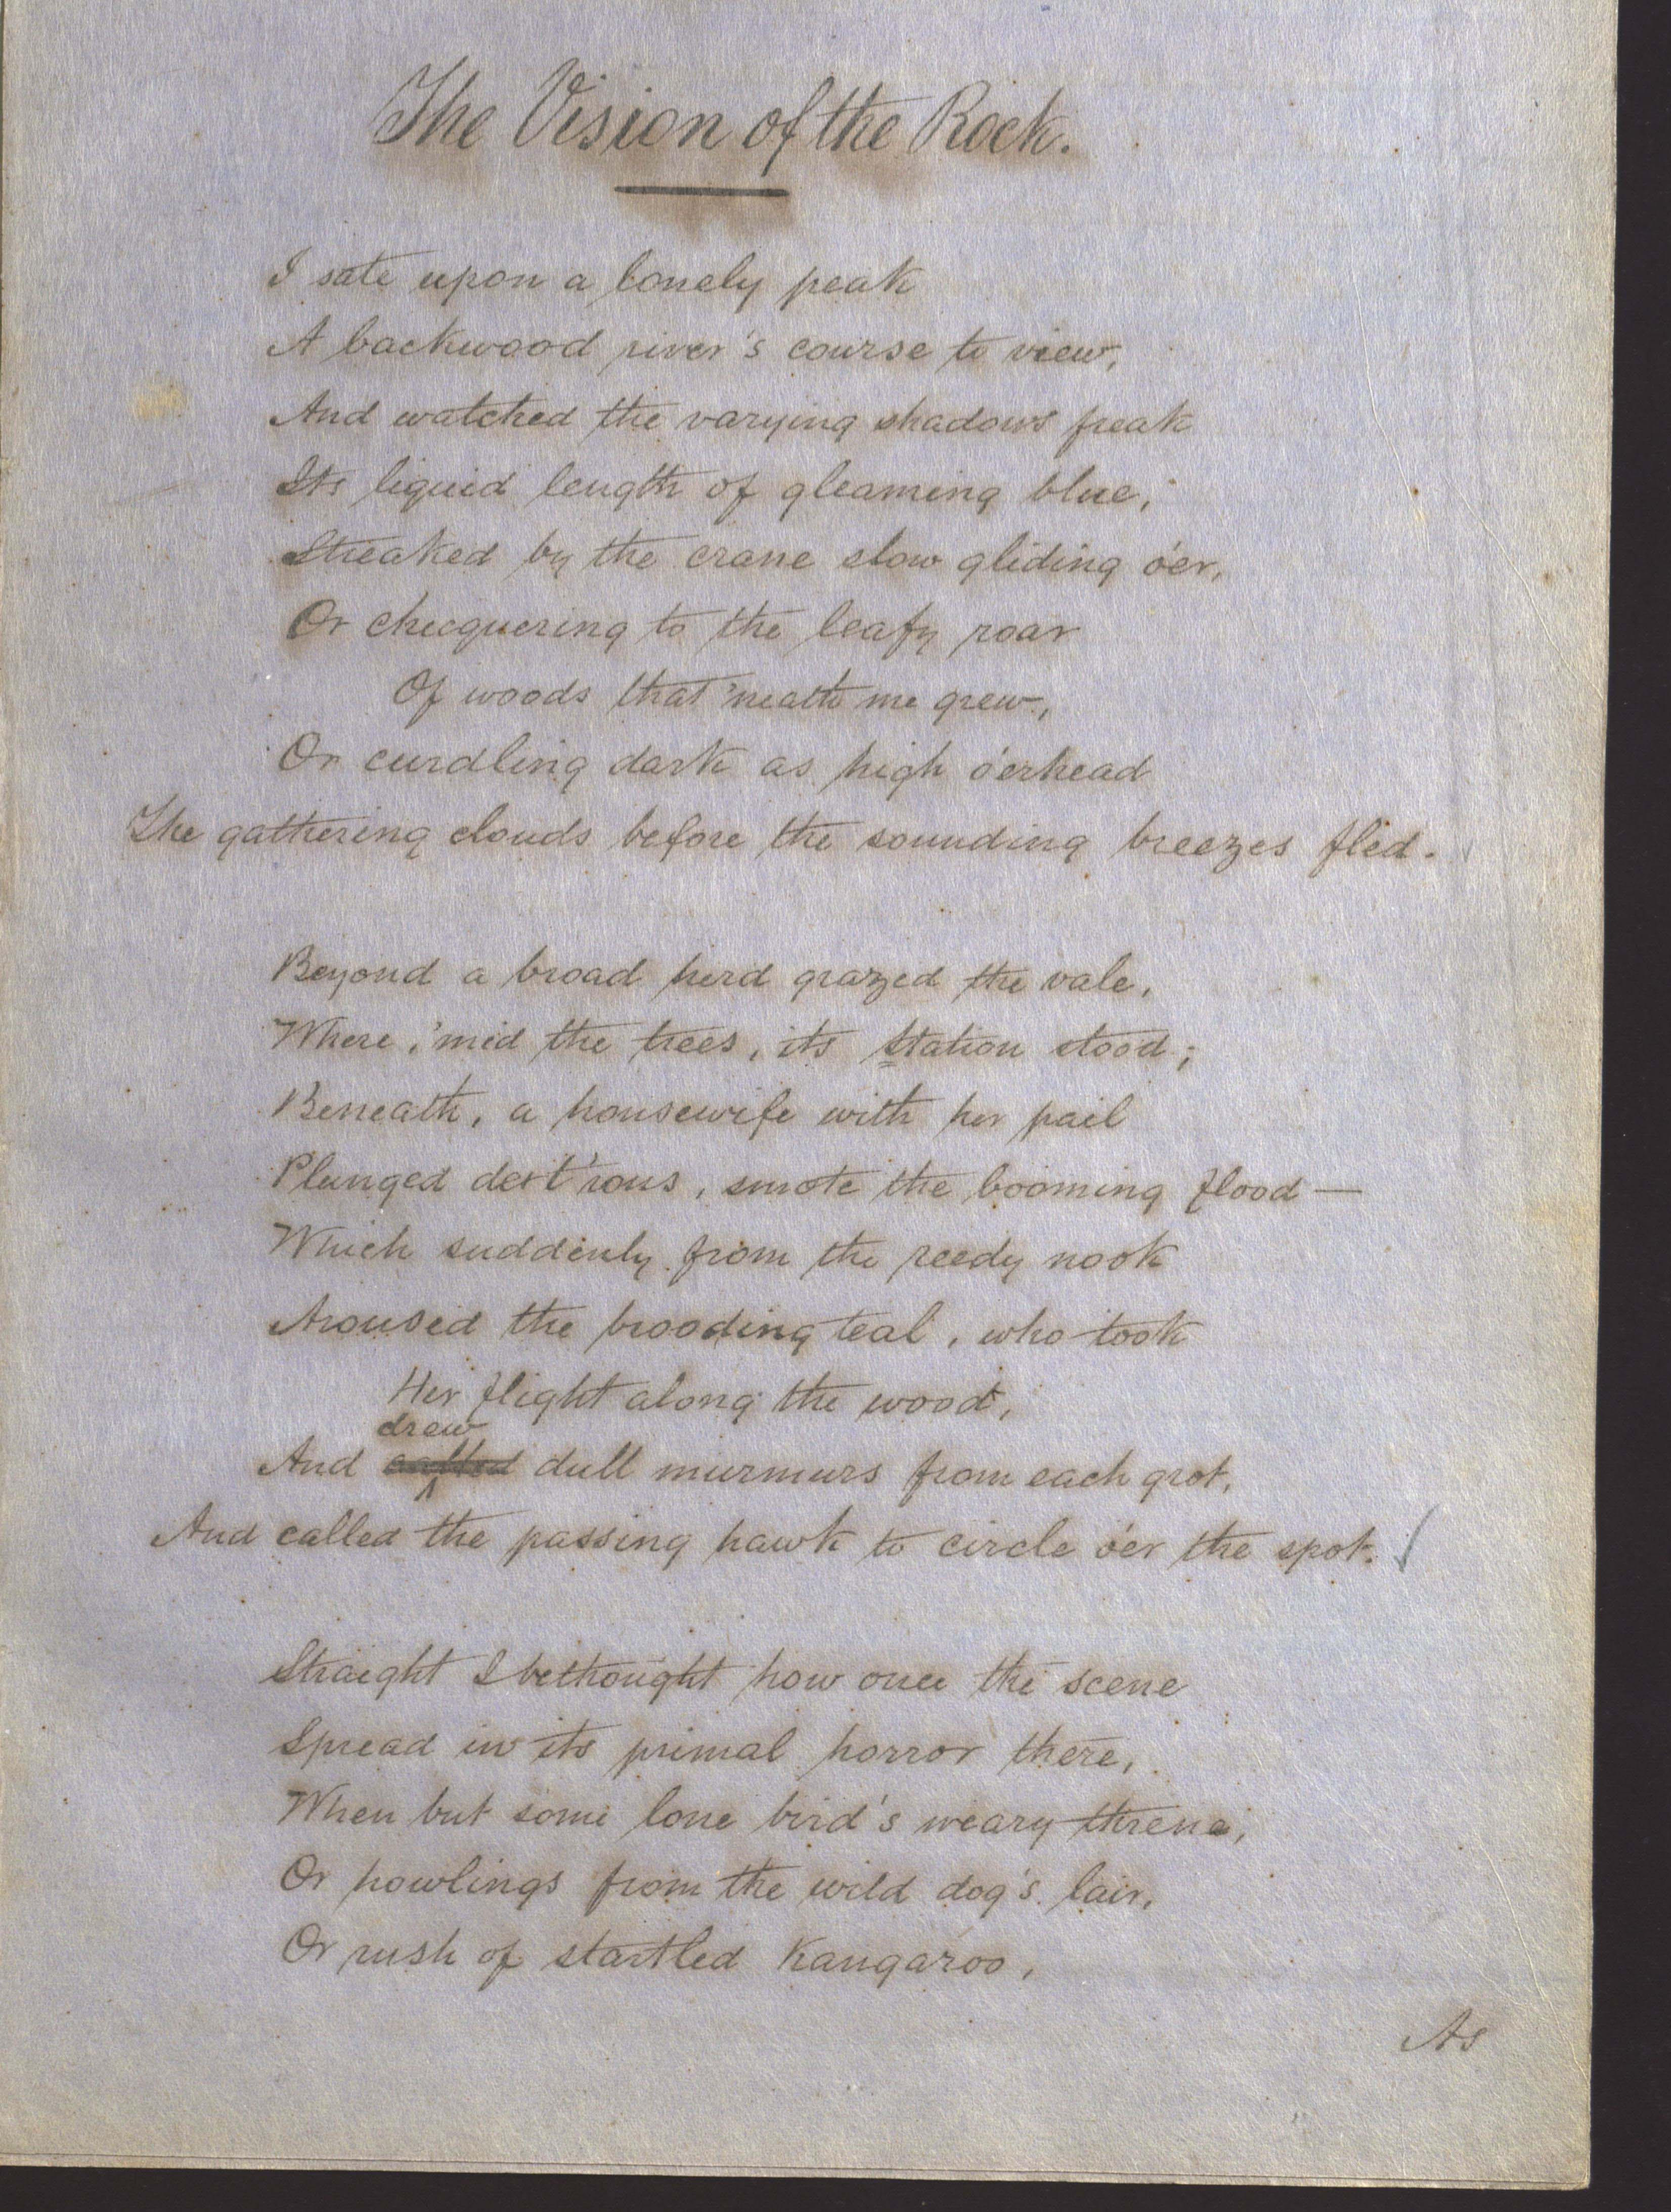 The Vision of the Rock.
I sate upon a lonely peak
A backwood river's course to view,
And watched the varying shadows freak
Its liquid length of gleaming blue,
Streaked by the crane slow gliding o'er,
Or checquering to the leafy roar
Of woods that 'neath me grew,
Or curdling dark as high o'erhead
The gathering clouds before the sounding breezes fled.
Beyond a broad herd grazed the vale,
Where, 'mid the trees, its Station stood;
Beneath, a housewife with her pail
Plunged dext'rous, smote the booming flood —
Which suddenly from the reedy nook
Aroused the brooding teal, who took
Her flight along the wood,
drew
And dull murmurs from each grot,
And called the passing hawk to circle o'er the spot.
Straight I bethought how once the scene
Spread in its primal horror there,
When but some lone bird's weary threne,
Or howlings from the wild dog's lair,
Or rush of startled Kangaroo,
As